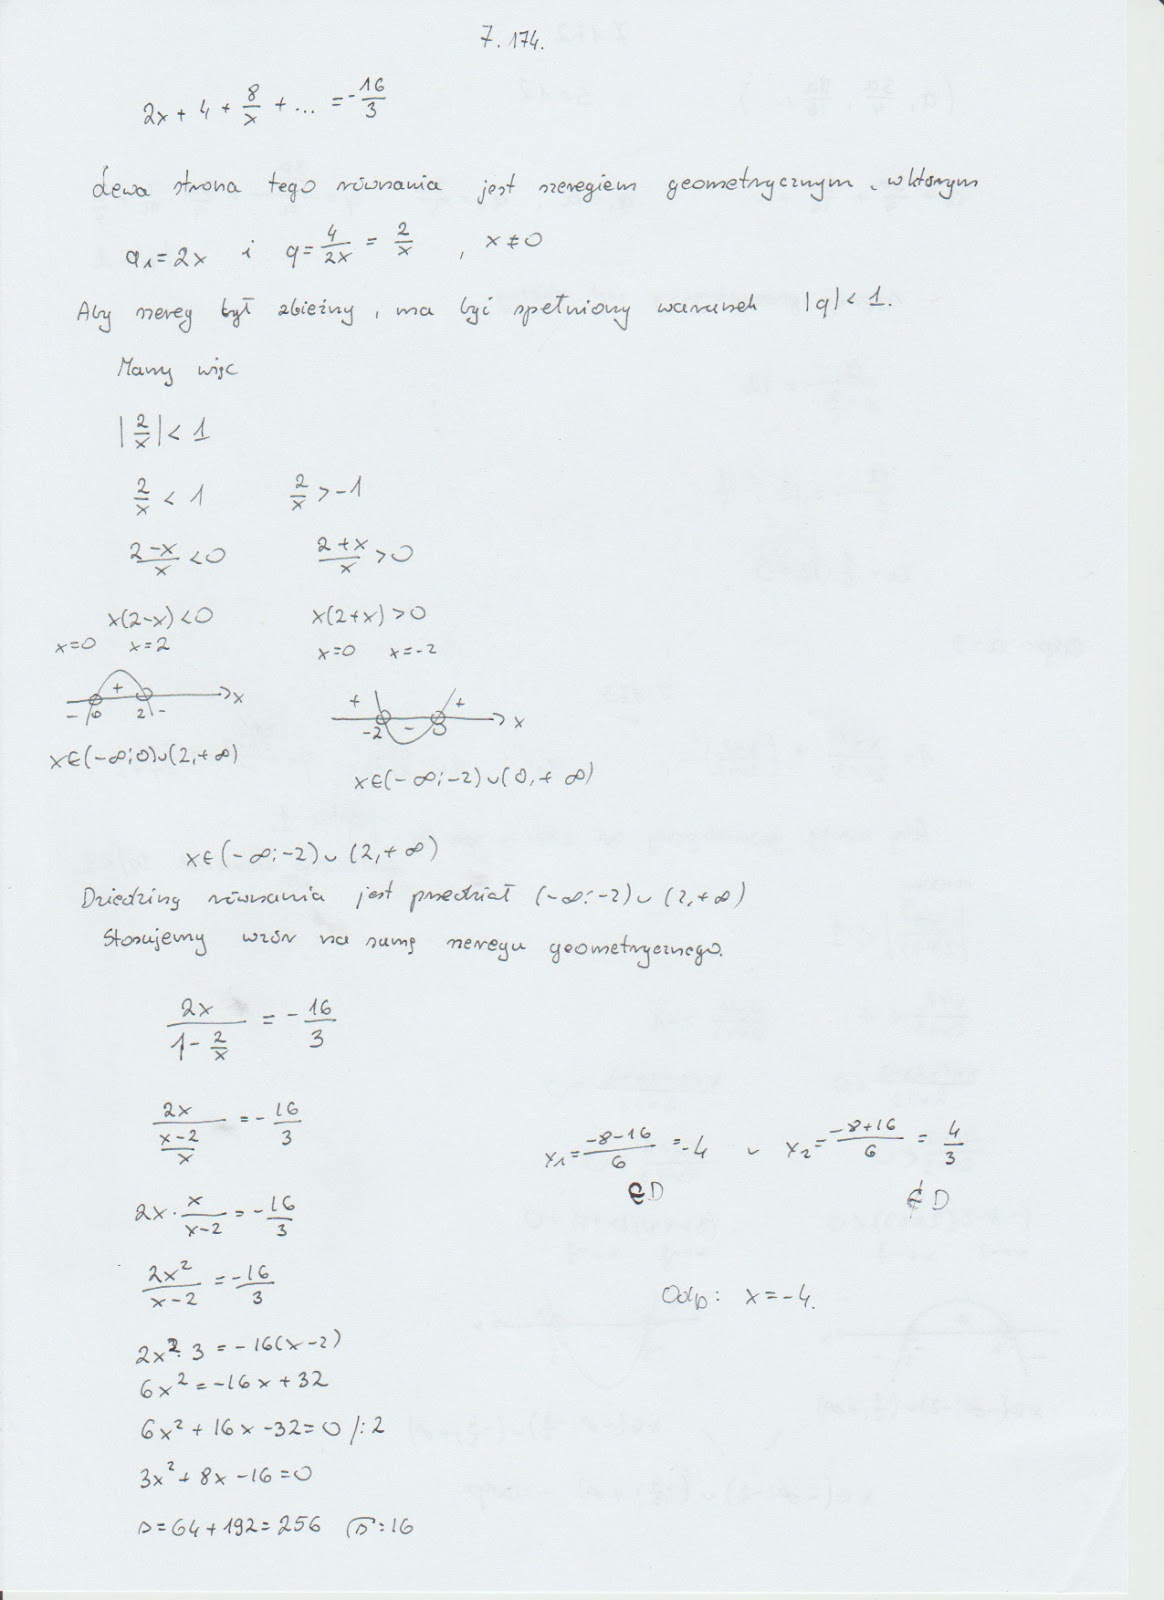 7.174.
2x + 4 + 8/x + ... = -16/3
Lewa strona tego równania jest szeregiem geometrycznym, w którym
a₁=2x i q= 4/2x = 2/x , x≠0
Aby szereg był zbieżny, ma być spełniony warunek |q|< 1.
Mamy więc
|2/x|< 1
2/x < 1 2/x >-1
2-x/x <0 2+x/x >0
x(2-x)<0 x(2+x)>0
x=0 x=2 x=0 x=-2
+ x
- 0 2 -
+ + x
-2 - 0
x∈(-∞;0)∪(2,+∞)
x∈(-∞;-2)∪(0,+∞)
x∈(-∞;-2)∪(2,+∞)
Dziedziną równania jest przedział (-∞;-2)∪(2,+∞)
Stosujemy wzór na sumę szeregu geometrycznego.
2x/(1-2/x) = -16/3
2x/((x-2)/x) = -16/3
2x · x/(x-2) = -16/3
2x²/(x-2) = -16/3
2x²·3 = -16(x-2)
6x² = -16x+32
6x²+16x-32=0 /:2
3x²+8x-16=0
Δ=64+192=256 √Δ=16
x₁= -8-16/6 =-4 ∪ x₂= -8+16/6 = 4/3
∈D ∉D
Odp: x=-4.